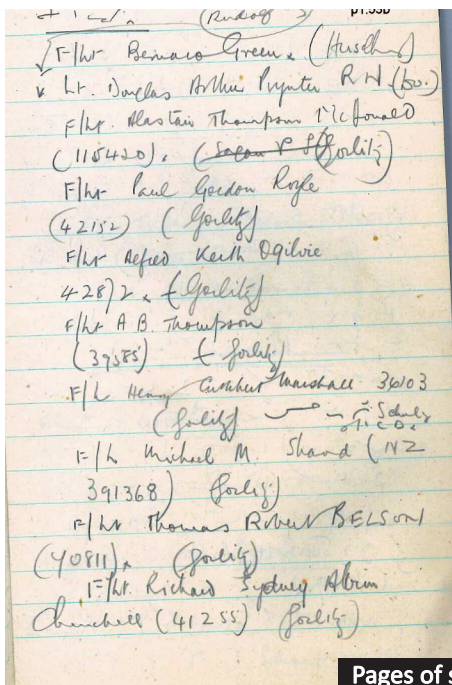 (Rudolf)
F/Lt Bernard Green. (Hirschberg)
Lt. Douglas Arthur Poynter RN (do.)
F/Lt. Alastair Thompson McDonald
(115420). (Sagan Gorlitz)
F/Lt Paul Gordon Royle
(42152) (Gorlitz)
F/Lt Alfred Keith Ogilvie
42872. (Gorlitz)
F/Lt A B. Thompson
(39585) (Gorlitz)
F/L Henry Cuthbert Marshall 36103
(Gorlitz)
F/L Michael M. Shand (NZ
391368) Gorlitz)
F/Lt Thomas Robert BELSON
(40811). (Gorlitz)
F/Lt. Richard Sydney Albion
Churchill (41255) Gorlitz)
Pages of s